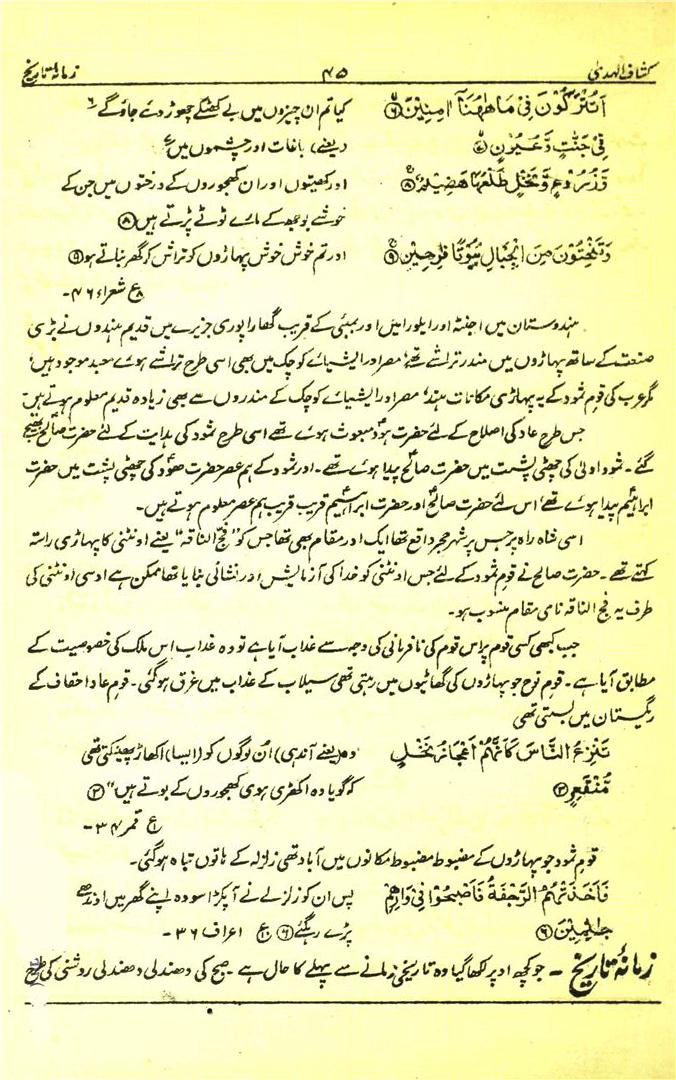 کشاف الہدیٰ ۴۵ زمانۂ تاریخ
اَتُتْرَكُوْنَ فِیْ مَا هٰهُنَاۤ اٰمِنِیْنَ ۶ کیا تم ان چیزوں میں بے کھٹکے چھوڑ دئے جاؤگے ۶
فِیْ جَنّٰتٍ وَّعُیُوْنٍ ۷ (یعنے) باغات اور چشموں میں ۷
وَّزُرُوْعٍ وَّنَخْلٍ طَلْعُهَا هَضِیْمٌ ۸ اور کھیتوں اور ان کھجوروں کے درختوں میں جن کے
خوشے بوجھ کے مارے ٹوٹے پڑتے ہیں ۸
وَتَنْحِتُوْنَ مِنَ الْجِبَالِ بُیُوْتًا فٰرِهِیْنَ ۹ اور تم خوش خوش پہاڑوں کو تراش کر گھر بناتے ہو ۹
۸ ع شعراء ۴۶ -
ہندوستان میں اجنٹہ اور ایلورا میں اور بمبئی کے قریب گھارا پوری جزیرے میں قدیم ہندوں نے بڑی
صنعت کے ساتھ پہاڑوں میں مندر تراشے تھے، مصر اور ایشیائے کوچک میں بھی اسی طرح تراشے ہوے معبد موجود ہیں،
مگر عرب کی قوم ثمود کے یہ پہاڑی مکانات ہند، مصر اور ایشیائے کوچک کے مندروں سے بھی زیادہ قدیم معلوم ہوتے ہیں
جس طرح عاد کی اصلاح کے لئے حضرت ہودؑ مبعوث ہوے تھے اسی طرح ثمود کی ہدایت کے لئے حضرت صالحؑ بھیجے
گئے۔ ثمود اولیٰ کی چھٹی پشت میں حضرت صالحؑ پیدا ہوے تھے۔ اور ثمود کے ہم عصر حضرت ہودؑ کی چھٹی پشت میں حضرت
ابراہیمؑ پیدا ہوے تھے، اس لئے حضرت صالحؑ اور حضرت ابراہیمؑ قریب قریب ہم عصر معلوم ہوتے ہیں۔
اسی شاہ راہ پر جس پر شہر حجر واقع تھا ایک اور مقام بھی تھا جس کو "فج الناقہ" یعنے اونٹنی کا پہاڑی راستہ
کہتے تھے۔ حضرت صالح نے قوم ثمود کے لئے جس اونٹنی کو خدا کی آزمایش اور نشانی بنایا تھا ممکن ہے اوسی اونٹنی کی
طرف یہ فج الناقہ نامی مقام منسوب ہو۔
جب کبھی کسی قوم پر اس قوم کی نافرمانی کی وجہ سے عذاب آیا ہے تو وہ عذاب اس ملک کی خصوصیت کے
مطابق آیا ہے۔ قوم نوح جو پہاڑوں کی گھاٹیوں میں رہتی تھی سیلاب کے عذاب میں غرق ہوگئی۔ قوم عاد احقاف کے
ریگستان میں بستی تھی
تَنْزِعُ النَّاسَ كَاَنَّهُمْ اَعْجَازُ نَخْلٍ وہ (یعنے آندہی) اُن لوگوں کو (ایسا) اکھاڑ پھینکتی تھی
مُّنْقَعِرٍ ۳ کہ گویا وہ اکھڑی ہوی کھجوروں کے بوتے ہیں" ۳
ع قمر ۳۴ -
قوم ثمود جو پہاڑوں کے مضبوط مضبوط مکانوں میں آباد تھی زلزلہ کے ہاتوں تباہ ہوگئی۔
فَاَخَذَتْهُمُ الرَّجْفَةُ فَاَصْبَحُوْا فِیْ دَارِهِمْ پس ان کو زلزلے نے آپکڑا سو وہ اپنے گھر میں اوندھے
جٰثِمِیْنَ ۶ پڑے رہ گئے ۶ ۱۰ ع اعراف ۳۶ -
زمانۂ تاریخ - جو کچھ اوپر لکھا گیا وہ تاریخی زمانے سے پہلے کا حال ہے۔ صبح کی دھندلی دھندلی روشنی کی طرح